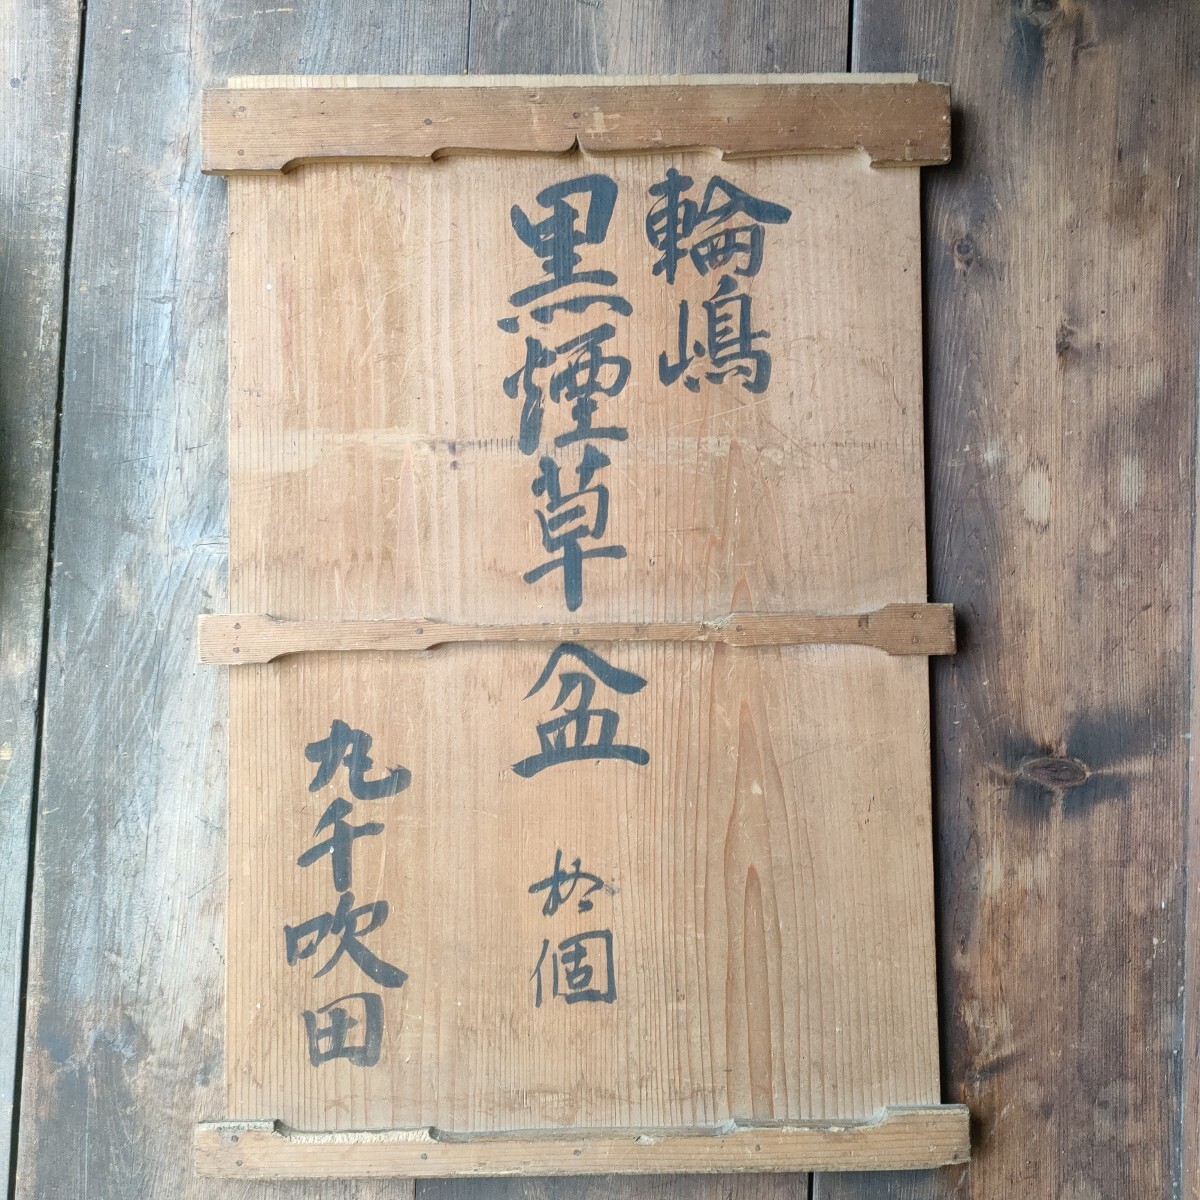 輪嶋
黒煙草盆 拾個
丸千吹田